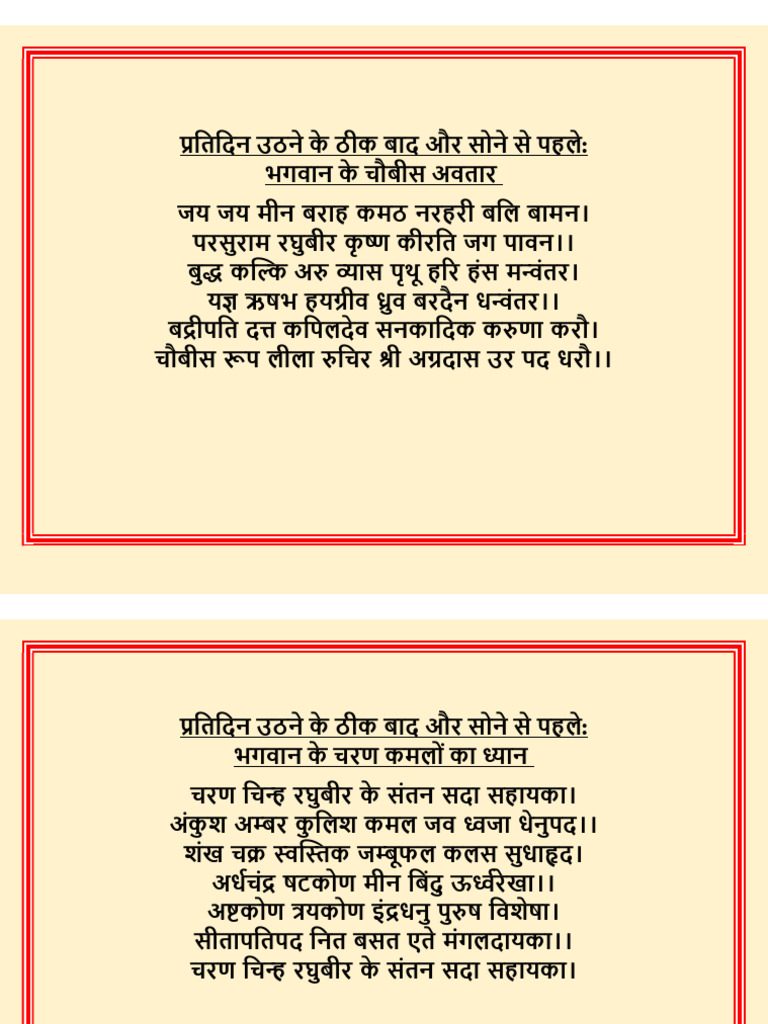 प्रतिदिन उठने के ठीक बाद और सोने से पहले:
भगवान के चौबीस अवतार
जय जय मीन बराह कमठ नरहरी बलि बामन।
परसुराम रघुबीर कृष्ण कीरति जग पावन।।
बुद्ध कल्कि अरु व्यास पृथू हरि हंस मन्वंतर।
यज्ञ ऋषभ हयग्रीव ध्रुव बरदैन धन्वंतर।।
बद्रीपति दत्त कपिलदेव सनकादिक करुणा करौ।
चौबीस रूप लीला रुचिर श्री अग्रदास उर पद धरौ।।
प्रतिदिन उठने के ठीक बाद और सोने से पहले:
भगवान के चरण कमलों का ध्यान
चरण चिन्ह रघुबीर के संतन सदा सहायका।
अंकुश अम्बर कुलिश कमल जव ध्वजा धेनुपद।।
शंख चक्र स्वस्तिक जम्बूफल कलस सुधाहृद।
अर्धचंद्र षटकोण मीन बिंदु ऊर्ध्वरेखा।।
अष्टकोण त्रयकोण इंद्रधनु पुरुष विशेषा।
सीतापतिपद नित बसत एते मंगलदायका।।
चरण चिन्ह रघुबीर के संतन सदा सहायका।